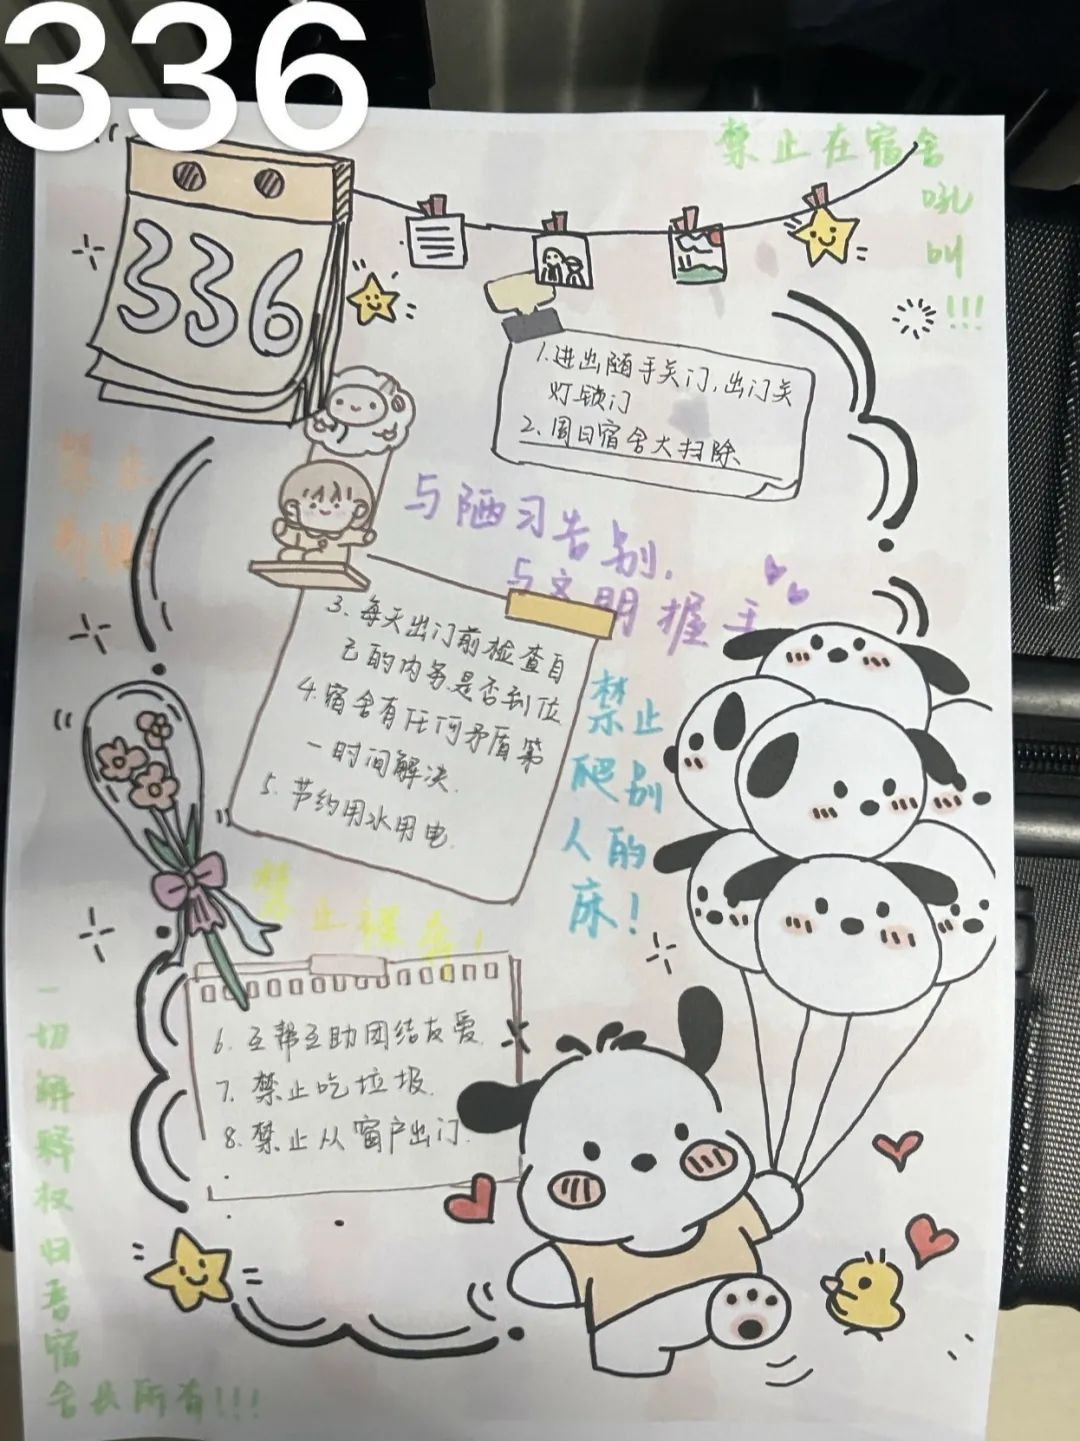 336
禁止在宿舍
吼
叫
!!!
336
1.进出随手关门,出门关
灯锁门
2.周日宿舍大扫除
禁止
与陋习告别,
与文明握手
3.每天出门前检查自
己的内务是否到位
4.宿舍有任何矛盾第
一时间解决.
5.节约用水用电.
禁止
爬别
人的
床!
禁止裸奔!
6.互帮互助团结友爱.
7.禁止吃垃圾.
8.禁止从窗户出门.
一
切
解
释
权
归
宿
舍长所有!!!